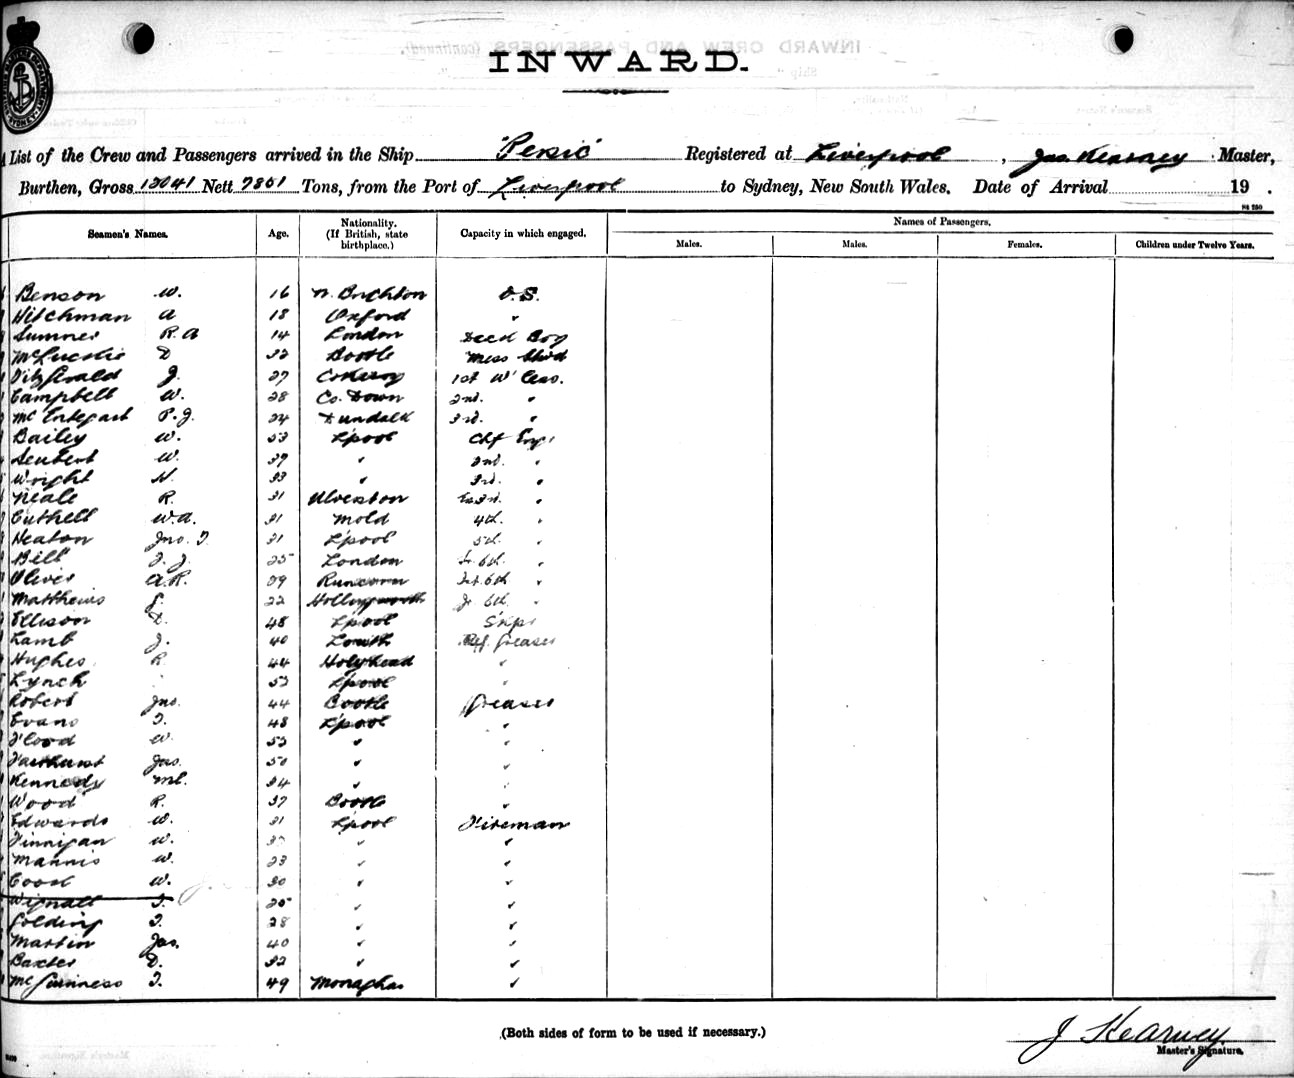 INWARD.
List of the Crew and Passengers arrived in the Ship "Persic" Registered at Liverpool, Jas Kearney Master,
Burthen, Gross 12041 Nett 7851 Tons, from the Port of Liverpool to Sydney, New South Wales. Date of Arrival 19 .
Seamen's Names. Age. Nationality. (If British, state birthplace.) Capacity in which engaged. Names of Passengers.
Males. Males. Females. Children under Twelve Years.
Benson W. 16 N. Brighton O.S.
Hitchman A 18 Oxford "
Sumner R.A 14 London Deck Boy
D 32 Bootle Mess Stwd
Fitzgerald J. 27 1st W'less.
Campbell W. 28 Co. Down 2nd. "
McEntegart P.J. 24 Dundalk 3rd. "
Bailey W. 53 L'pool Chf Engr
Seubert W. 39 " 2nd. "
Wright N. 33 " 3rd. "
Neale R. 31 Ulverston Ex 3rd. "
Cuthell W.A. 31 Mold 4th. "
Heaton Jno. T 31 L'pool 5th. "
Bill T.J. 25 London Sr. 6th. "
Oliver A.R. 29 Runcorn Int. 6th "
Matthews 22 Hollingworth Jr 6th. "
Ellison D. 48 L'pool S'kpr
Lamb J. 40 Louth Ref. Greaser
Hughes R. 44 Holyhead "
Lynch 53 L'pool "
Robert Jno. 44 Bootle Greaser
Evans T. 48 L'pool "
Flood W. 53 " "
Fairhurst Jas. 50 " "
Kennedy Ml. 34 " "
Wood R. 37 Bootle "
Edwards W. 31 L'pool Fireman
Finnigan W. " "
Mannis W. 23 " "
Cook W. 30 " "
Wignall T. 25 " "
Golding T. 28 " "
Martin Jas. 40 " "
Baxter D. 32 " "
McGuinness T. 49 Monaghan "
(Both sides of form to be used if necessary.)
J Kearney
Master's Signature.